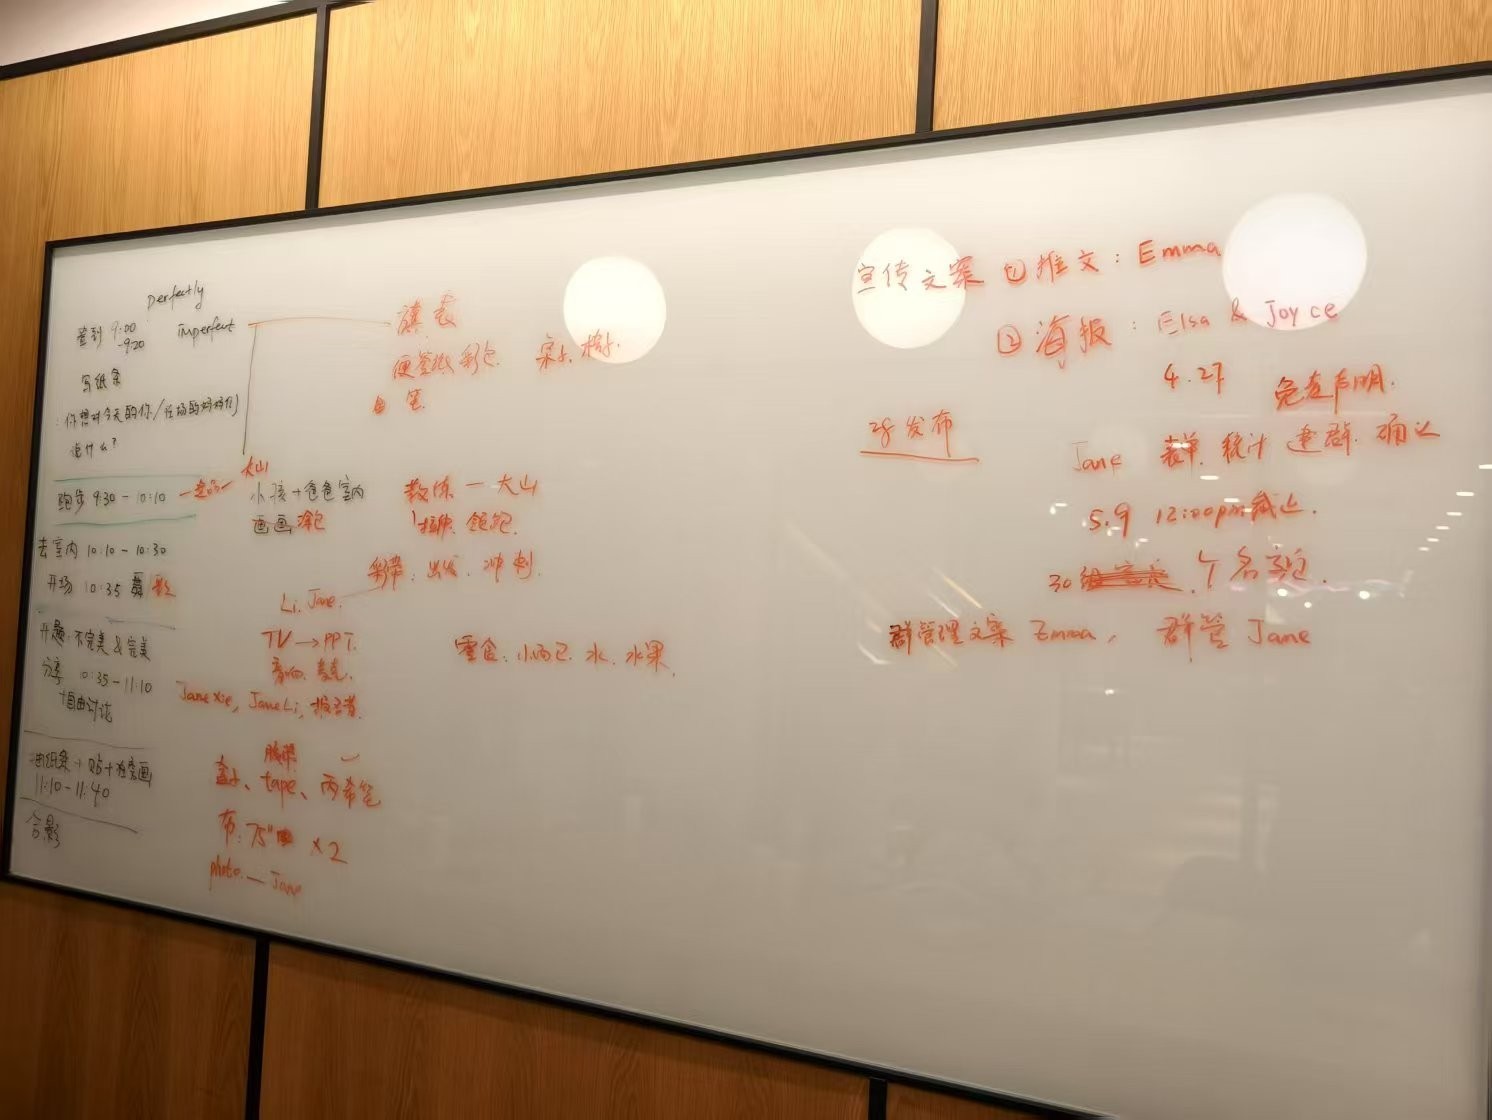 Perfectly
imperfect
签到 9:00
-9:20
写纸条
你想对今天的你/在场的妈妈们
说什么?
跑步 9:30 - 10:10
去室内 10:10 - 10:30
开场 10:35
开题: 不完美 & 完美
分享 10:35 - 11:10
+自由讨论
纸条 + 贴 +
11:10 - 11:40
合影
签
便签纸
笔
大山
小孩 + 爸爸室内
画画 涂色
教练 — 大山
拉伸. 领跑.
彩带: 出发. 冲刺.
Li. Jane.
TV → PPT.
音响. 麦克.
零食: 水. 水果.
Jane Xie, Jane Li,
胶带
盒子、tape、
布: 75" × 2
photo. — Jane
宣传文案 ① 推文: Emma
② 海报: Elsa & Joyce
4.27
免责声明.
28 发布
Jane 表单. 统计 建群. 确认
5.9 12:00pm 截止.
30 个名额.
群管理文案 Emma, 群管 Jane